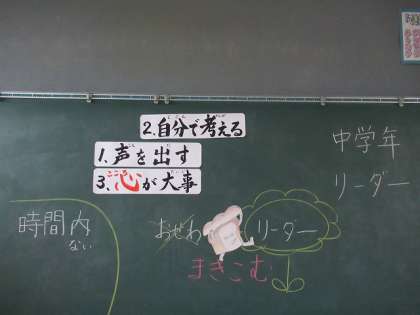 2.自分で考える
1.声を出す
3.心が大事
中学年
リーダー
時間内
ない
おせわ
リーダー
まきこむ